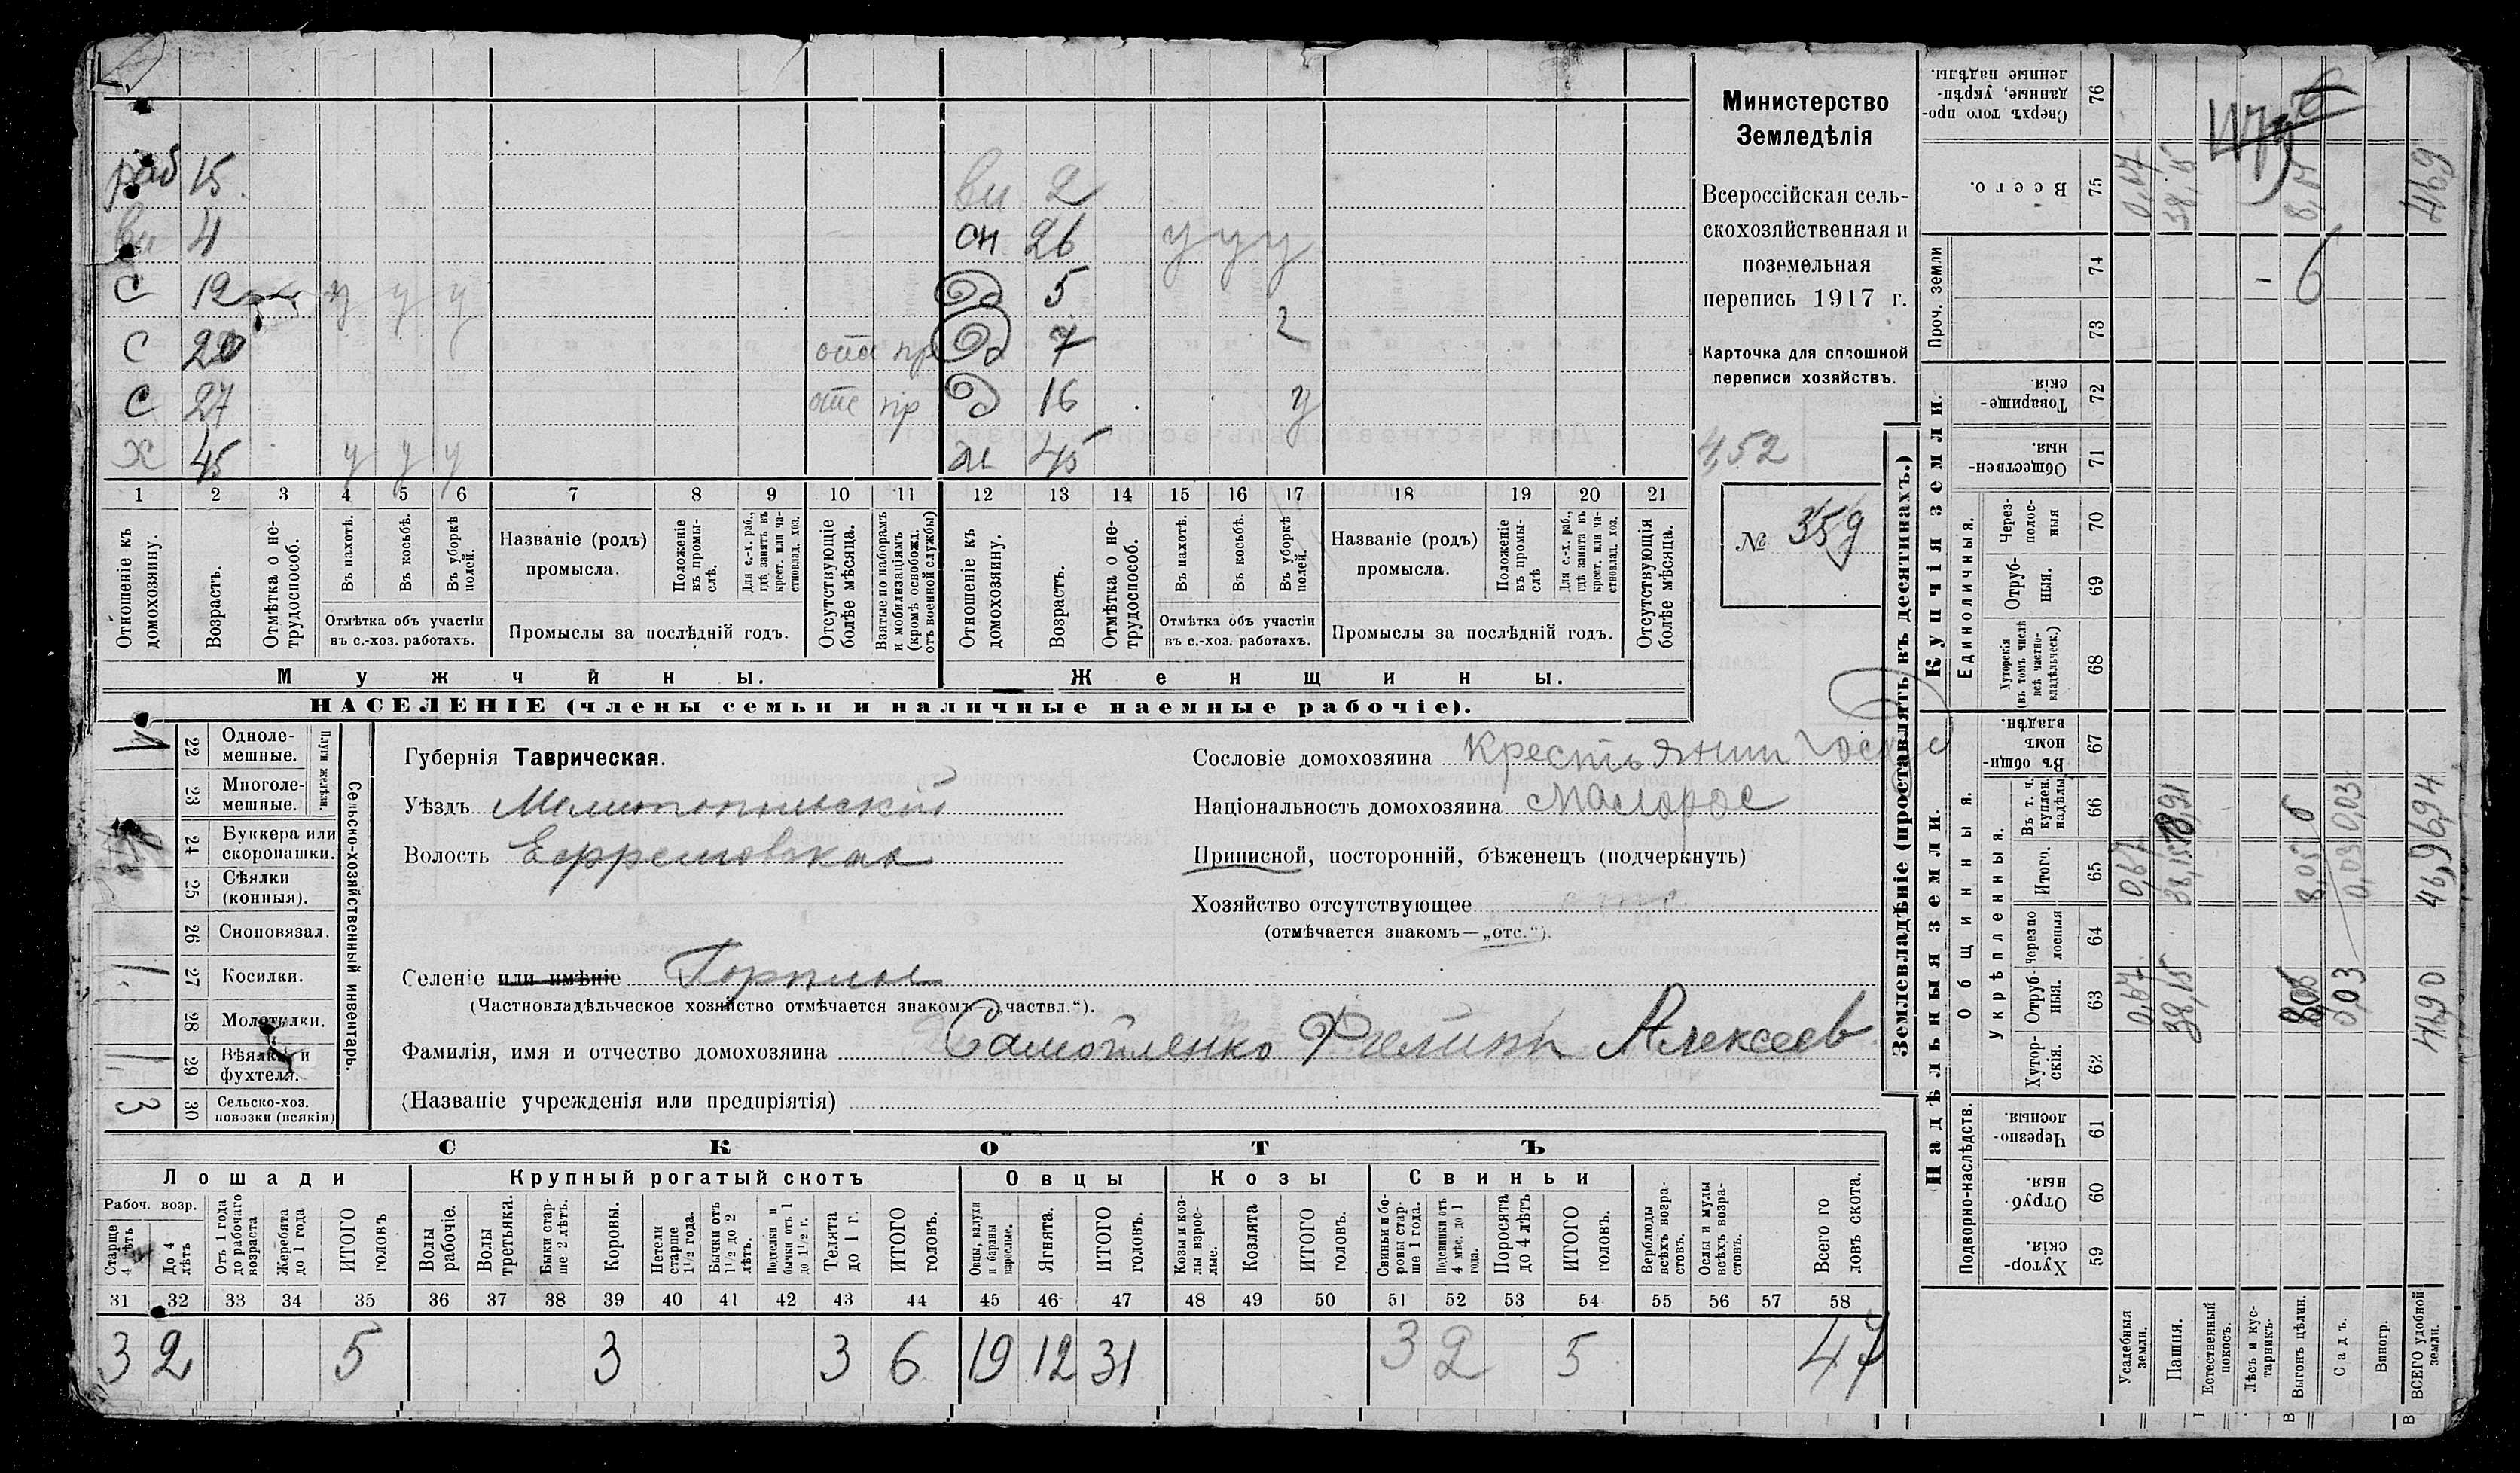 раб 15
вн 4
С 12 у у у
С 20 отс пр
С 27 отс пр
Х 45 у у у
вн 2
сн 26 у у у
д 5
д 7 2
д 16 у
ж 45
1 2 3 4 5 6 7 8 9 10 11 12 13 14 15 16 17 18 19 20 21
Отношеніе къ домохозяину.
Возрастъ.
Отмѣтка о не-трудоспособ.
Въ пахотѣ.
Въ косьбѣ.
Въ уборкѣ полей.
Отмѣтка объ участіи въ с.-хоз. работахъ.
Названіе (родъ) промысла.
Положеніе въ промы-слѣ.
Для с.-х. раб., гдѣ занятъ въ крест. или ча-стновлад. хоз.
Промыслы за послѣдній годъ.
Отсутствующіе болѣе мѣсяца.
Взятые по наборамъ и мобилизаціямъ (кромѣ освобожд. отъ военной службы)
Отношеніе къ домохозяину.
Возрастъ.
Отмѣтка о не-трудоспособ.
Въ пахотѣ.
Въ косьбѣ.
Въ уборкѣ полей.
Отмѣтка объ участіи въ с.-хоз. работахъ.
Названіе (родъ) промысла.
Положеніе въ промы-слѣ
Для с.-х. раб., гдѣ занята въ крест. или ча-стновлад. хоз.
Промыслы за послѣдній годъ.
Отсутствующія болѣе мѣсяца.
Мужчины.
Женщины.
НАСЕЛЕНІЕ (члены семьи и наличные наемные рабочіе).
Министерство
Земледѣлія
Всероссійская сель-
скохозяйственная и
поземельная
перепись 1917 г.
Карточка для сплошной
переписи хозяйствъ.
452
№ 359
22 Одноле-мешные. 1
23 Многоле-мешные.
Плуги желѣзн.
24 Буккера или скоропашки.
25 Сѣялки (конныя).
26 Сноповязал.
27 Косилки. 1
28 Молотилки.
29 Вѣялки и фухтеля. 1
30 Сельско-хоз. повозки (всякія) 3
Сельско-хозяйственный инвентарь.
Губернія Таврическая.
Уѣздъ Мелитопольскій
Волость Ефремовская
Селеніе или имѣніе Горѣлое
(Частновладѣльческое хозяйство отмѣчается знакомъ „частвл.“).
Сословіе домохозяина крестьянин
Національность домохозяина малорос
Приписной, посторонній, бѣженецъ (подчеркнуть)
Хозяйство отсутствующее
(отмѣчается знакомъ—„отс.“).
Фамилія, имя и отчество домохозяина Самойленко Филипъ Алексеев
(Названіе учрежденія или предпріятія)
СКОТЪ
Лошади
Крупный рогатый скотъ
Овцы
Козы
Свиньи
Рабоч. возр.
Старше 4 лѣтъ
До 4 лѣтъ
Отъ 1 года до рабочаго возраста
Жеребята до 1 года
ИТОГО головъ
Волы рабочіе.
Волы третьяки.
Быки стар-ше 2 лѣтъ.
Коровы.
Нетели старше 1 1/2 года.
Бычки отъ 1 1/2 до 2 лѣтъ.
Подтелки и бычки отъ 1 до 1 1/2 г.
Телята до 1 г.
ИТОГО головъ.
Овцы, валухи и бараны взрослые.
Ягнята.
ИТОГО головъ.
Козы и коз-лы взрос-лые.
Козлята
ИТОГО головъ.
Свиньи и бо-ровы стар-ше 1 года.
Подсвинки отъ 4 мѣс. до 1 года.
Поросята до 4 лѣтъ
ИТОГО головъ.
Верблюды всѣхъ возра-стовъ.
Ослы и мулы всѣхъ возра-стовъ.
Всего го ловъ скота.
31 32 33 34 35 36 37 38 39 40 41 42 43 44 45 46 47 48 49 50 51 52 53 54 55 56 57 58
3 2 5 3 3 6 19 12 31 3 2 5 47
Землевладѣніе (проставлять въ десятинахъ.)
Надѣльныя земли.
Купчія земли.
Проч. земли
Подворно-наслѣдств.
Общинныя.
Укрѣпленныя.
Единоличныя.
Хутор-скія. 59
Отруб-ныя. 60
Черезпо-лосныя. 61
Хутор-скія. 62
Отруб-ныя. 63
Черезпо лосныя 64
Итого. 65
Въ т. ч. куплен. надѣлы 66
Въ общи-номъ владѣн. 67
Хуторскія (въ томъ числѣ всѣ частно-владѣльческ.) 68
Отруб-ныя. 69
Через-полос-ныя 70
Обществен-ныя. 71
Товарище-скія. 72
73
74
Всего. 75
Сверхъ того про-данные, укрѣп-ленные надѣлы. 76
Усадебныя земли. 0,67 0,67 0,67
Пашня. 38,15 38,15 38,15
Естественный покосъ.
Лѣсъ и кус-тарникъ.
Выгонъ цѣлин. 8,05 8,05
Садъ. 0,03 0,03 0,03
Виногр.
ВСЕГО удобной земли. 46,90 46,9 469
- 6